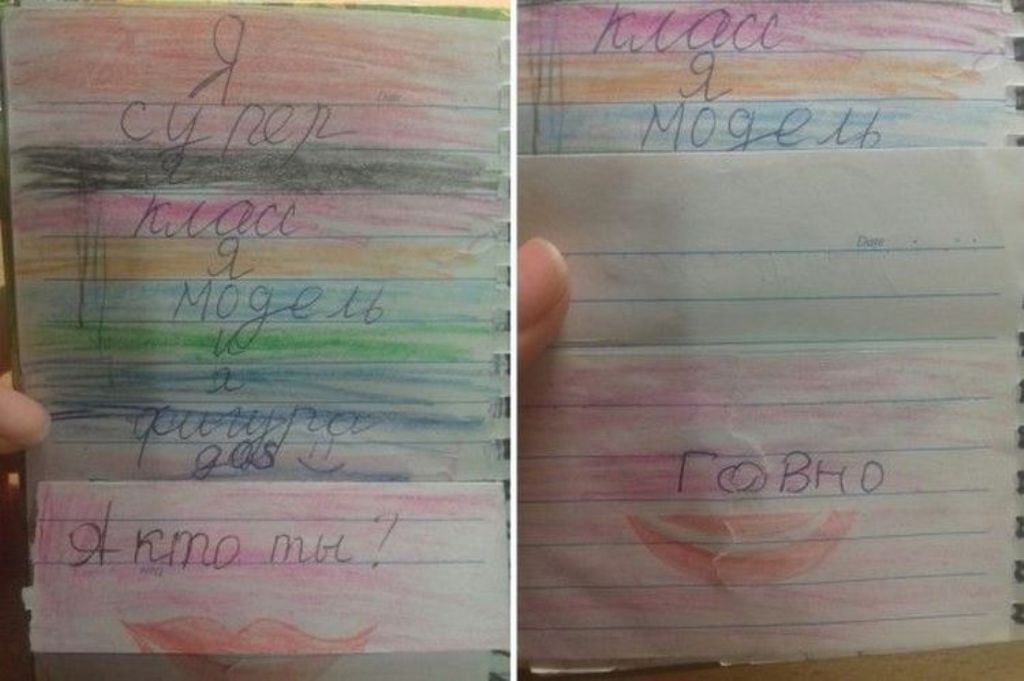 Я
супер
я
класс
Я
модель
и
я
фигура
gas
Я кто ты?
класс
Я
модель
Date
говно